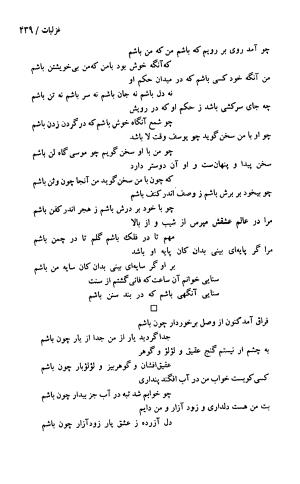 غزلیات / ۴۳۹
چو آمد روی بر رویم که باشم من که من باشم
که‌آنگه خوش بود با من که من بی‌خویشتن باشم
من آنگه خود کسی باشم که در میدان حکم او
نه دل باشم نه جان باشم نه سر باشم نه تن باشم
چه جای سرکشی باشد ز حکم او که در رویش
چو شمع آنگاه خوش باشم که در گردن زدن باشم
چو او با من سخن گوید چو یوسف وقت لا باشد
چو من با او سخن گویم چو موسی گاه لن باشم
سخن پیدا و پنهانست و او آن دوستر دارد
که چون با من سخن گوید من آنجا چون وثن باشم
چو بیخود بر برش باشم ز وصف اندر کنف باشم
چو با خود بر درش باشم ز هجر اندر کفن باشم
مرا در عالم عشقش مپرس از شیب و از بالا
مهم تا در فلک باشم گلم تا در چمن باشم
مرا گر پایه‌ای بینی بدان کان پایه او باشد
بر او گر سایه‌ای بینی بدان کان سایه من باشم
سنایی خوانم آن ساعت که فانی گشتم از سنت
سنایی آنگهی باشم که در بند سنن باشم
فراق آمد کنون از وصل برخوردار چون باشم
جدا گردید یار از من جدا از یار چون باشم
به چشم ار نیستم گنج عقیق و لؤلؤ و گوهر
عقیق‌افشان و گوهربیز و لؤلؤبار چون باشم
کسی کوبست خواب من در آب افگند پنداری
چو خوابم شد تبه در آب جز بیدار چون باشم
بت من هست دلداری و زود آزار و من دایم
دل آزرده ز عشق یار زودآزار چون باشم